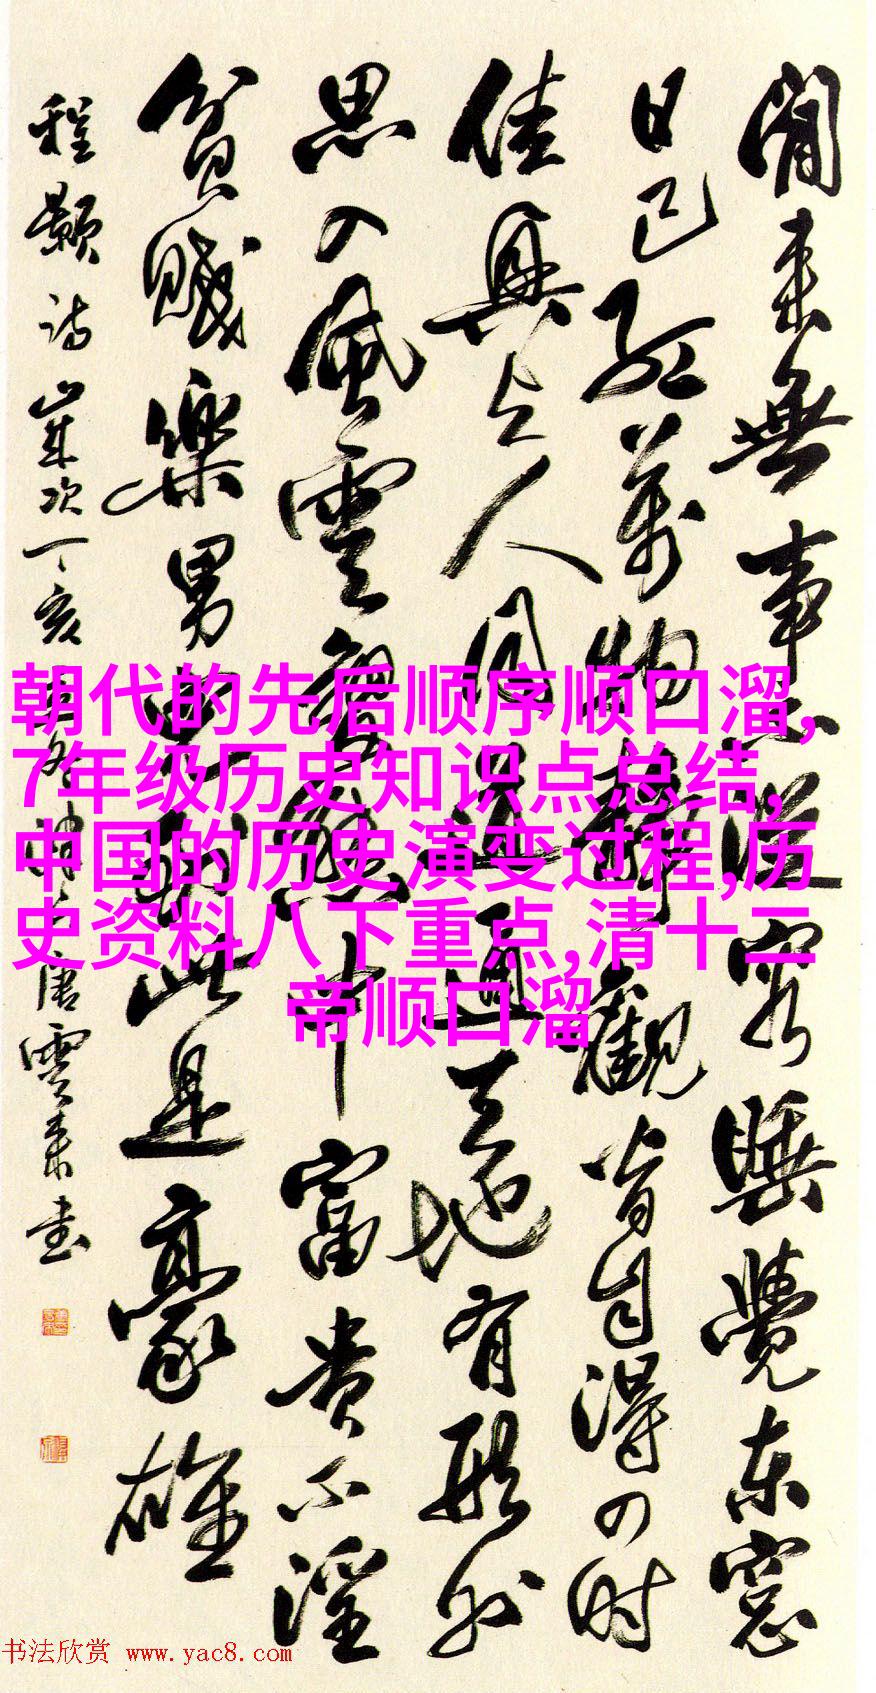 閒来無事不從容睡覺东窓
日已红萬物静觀皆自得四时
佳興与人同道通天地有形外
思入風雲變態中富貴不淫
貧賤樂男兒到此是豪雄
程顥诗歲次丁亥 唐雲来书
朝代的先后顺序顺口溜,
7年级历史知识点总结,
中国的历史演变过程,历
史资料八下重点,清十二
帝顺口溜
书法欣赏 www.yac8.com